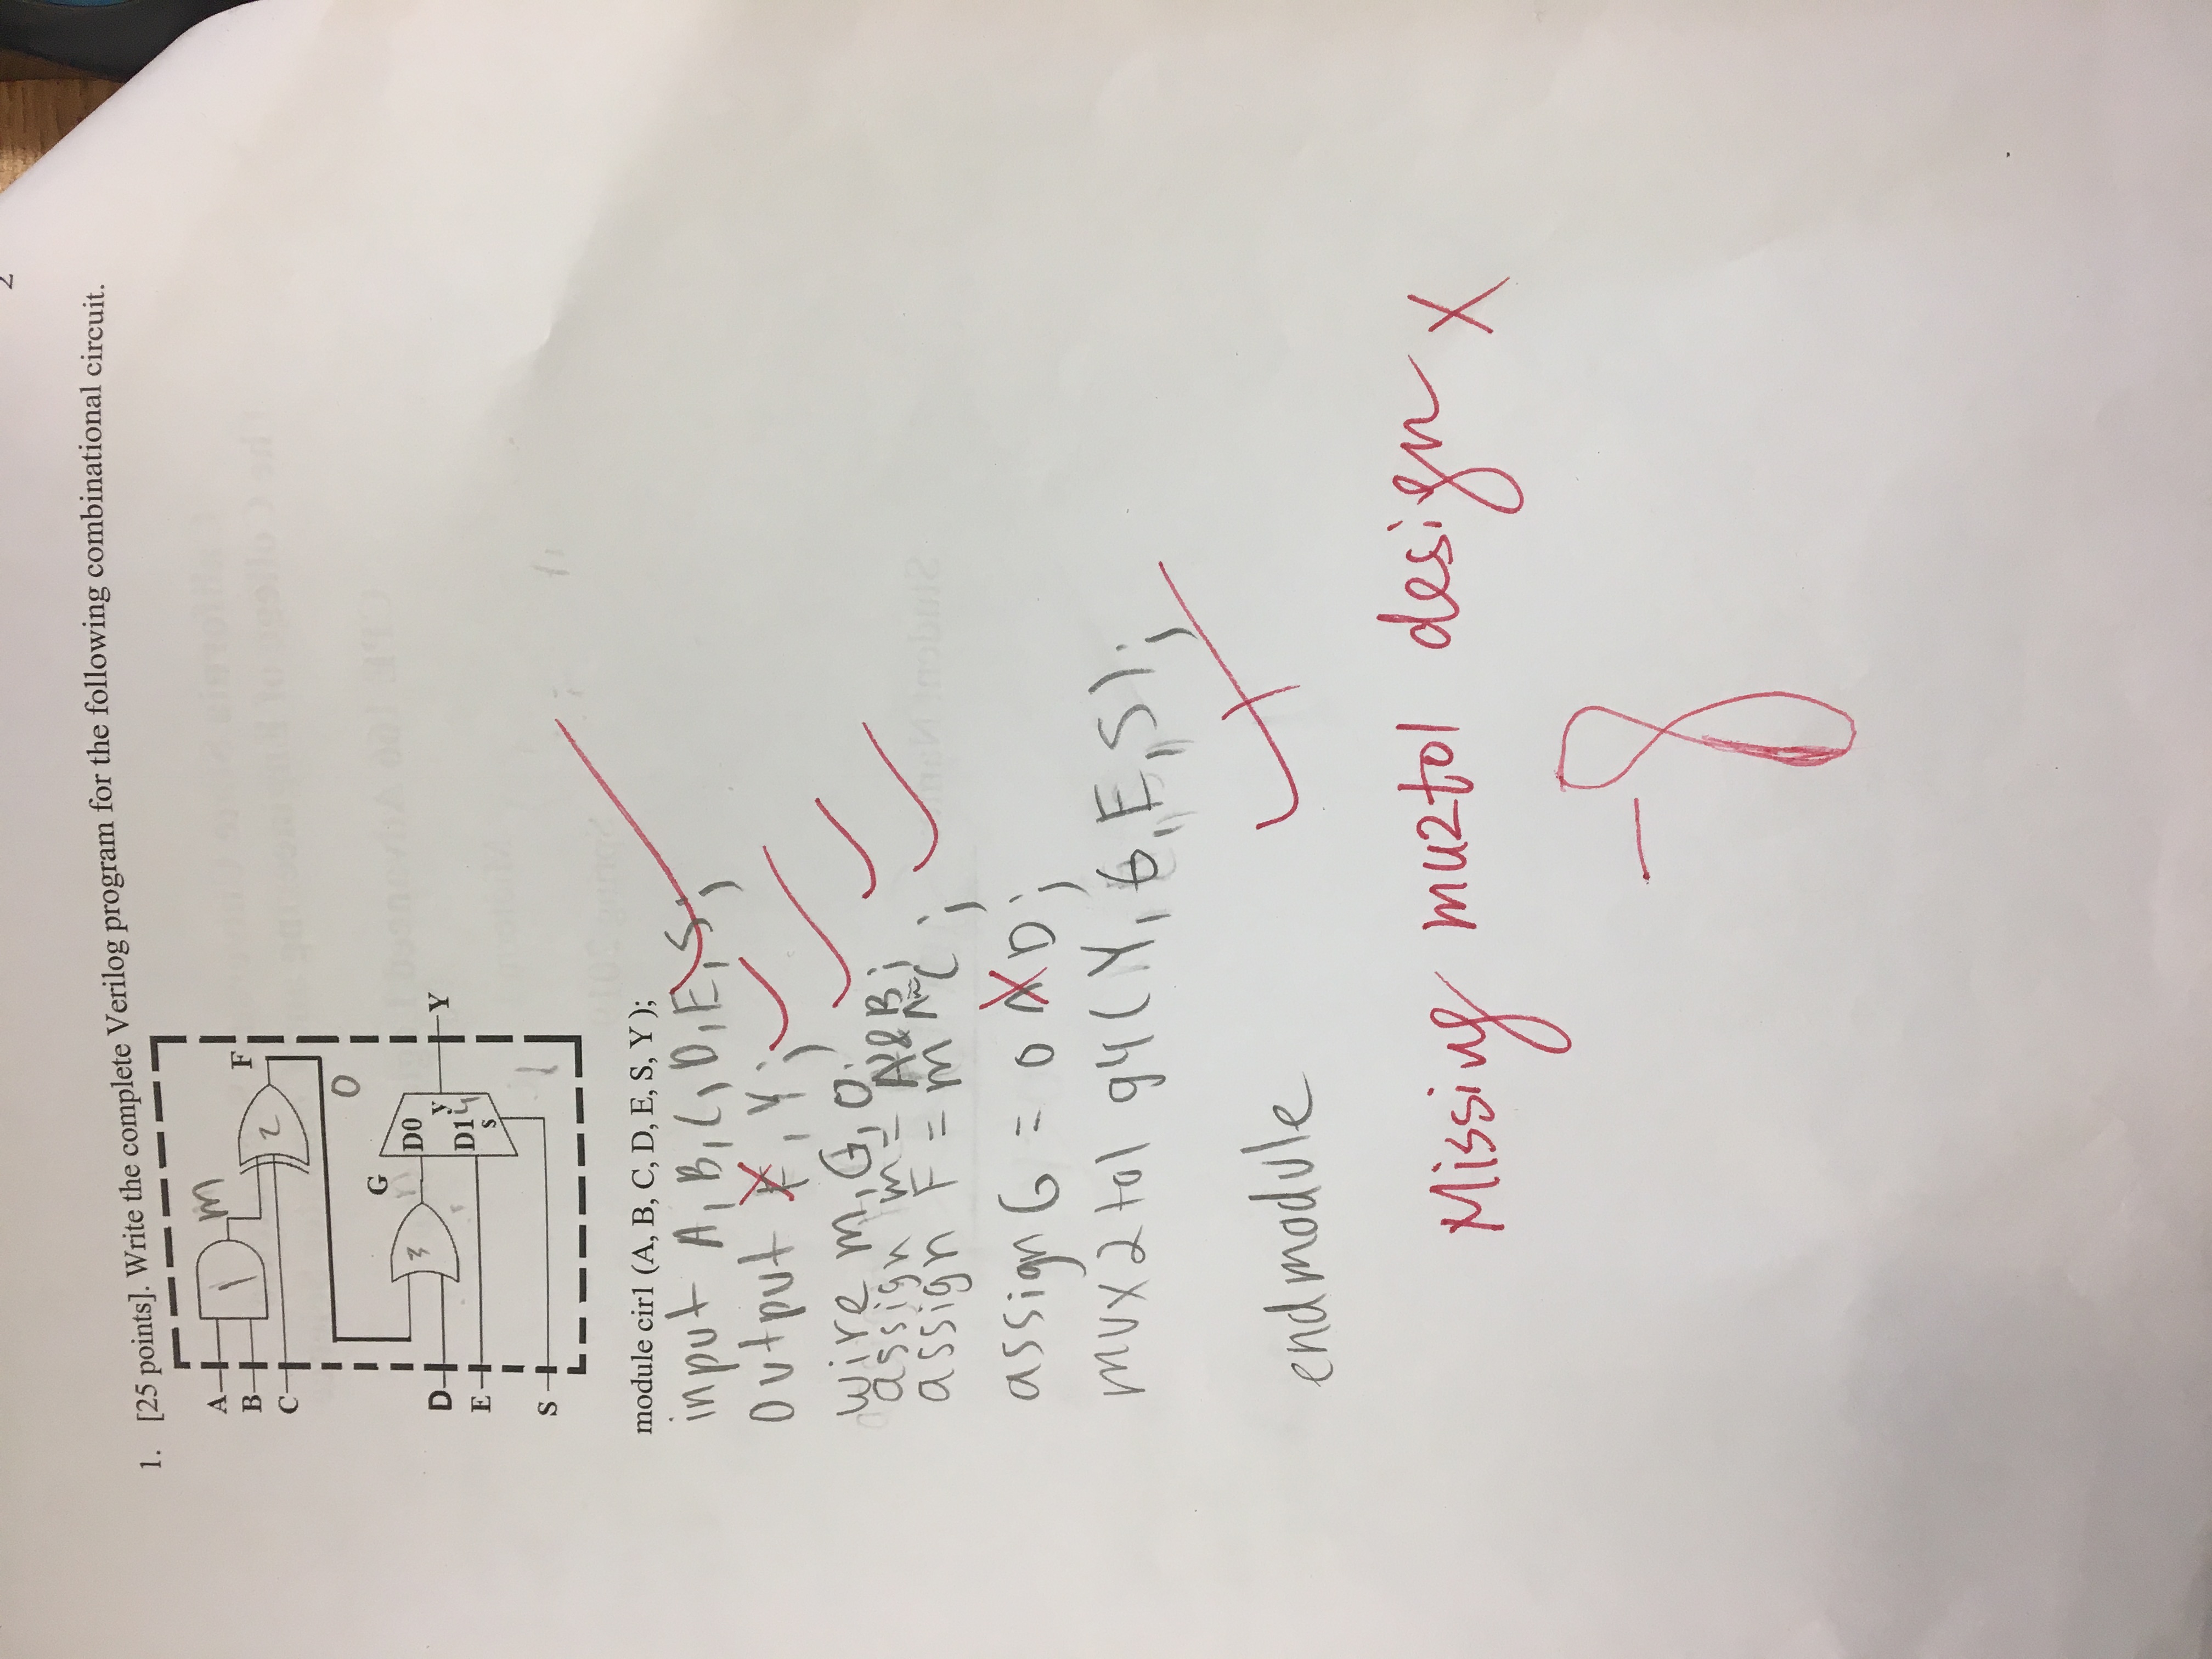 2
1. [25 points]. Write the complete Verilog program for the following combinational circuit.
A
1
m
B
C
2
F
O
G
n
3
D0
D
y
Y
D1
4
E
s
S
1
module cir1 (A, B, C, D, E, S, Y );
input A, B, C, D, E, S;
output F, Y;
wire m, G, O;
assign m = A & B;
assign F = m ^ C ;
assign G = O D;
mux2to1 g4(Y, G, E, S);
endmodule
Missing mu2to1 design X
-8